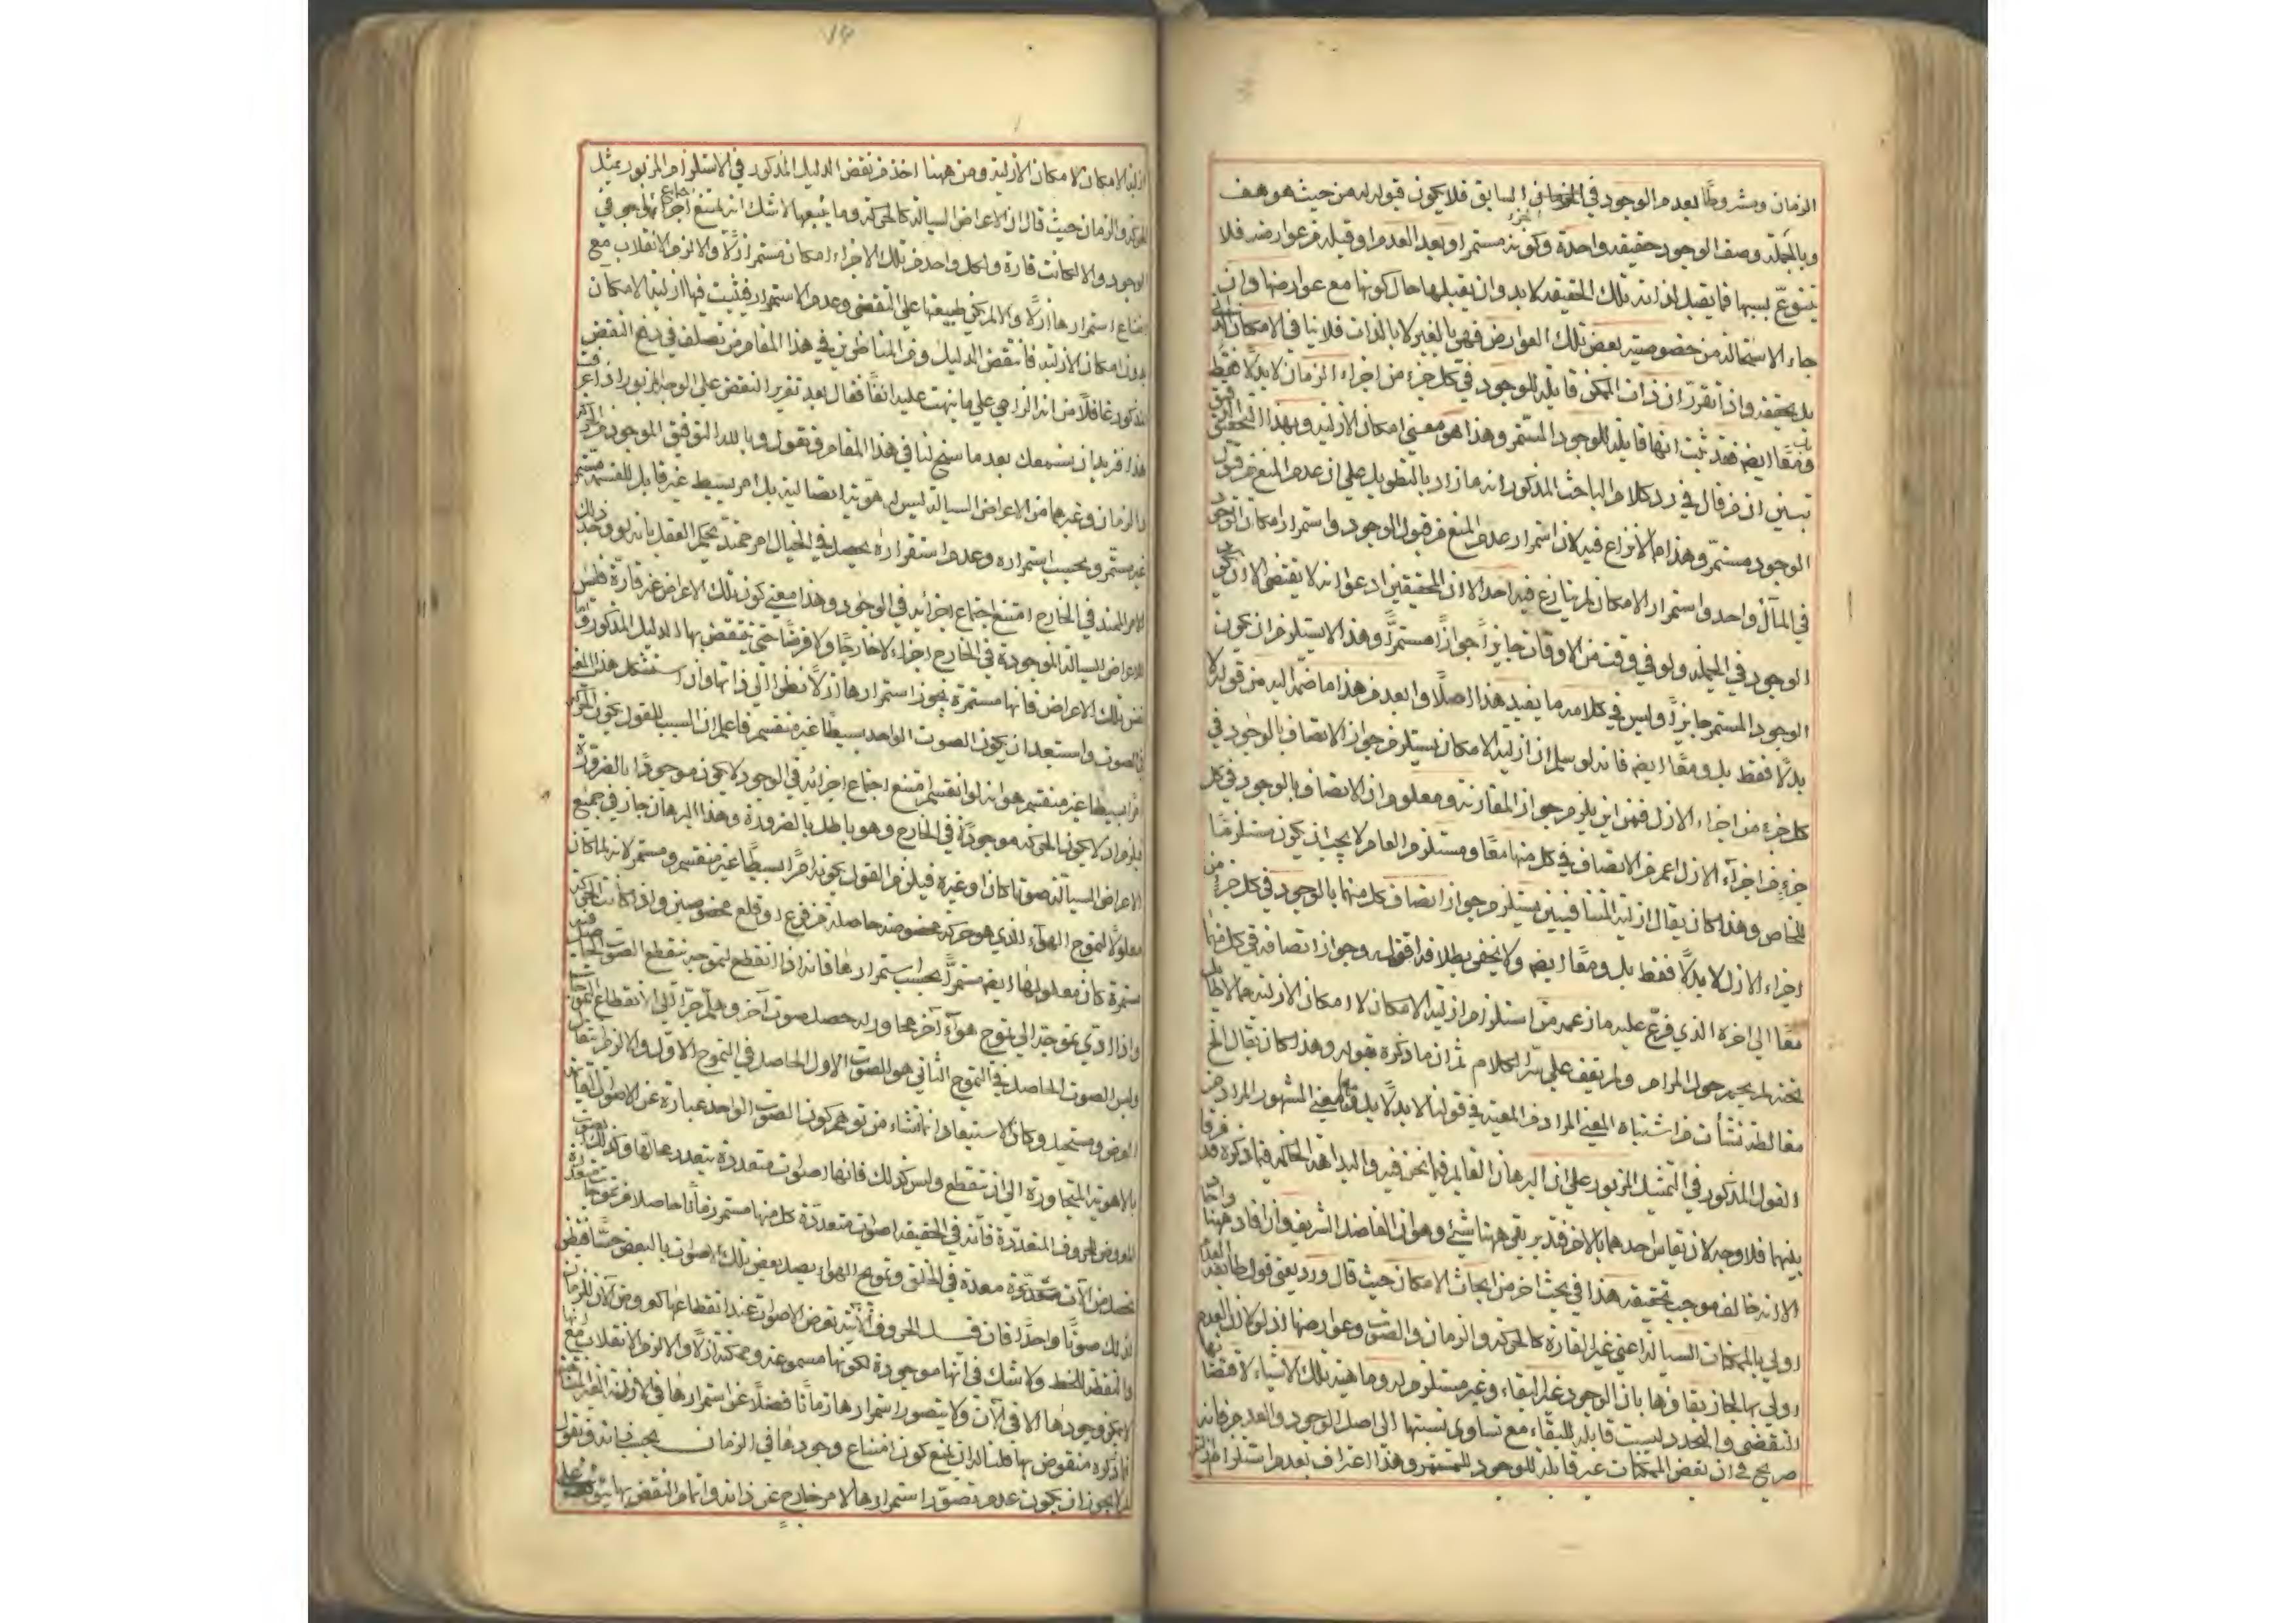 الزمان ومشروطا بعدم الوجود في الجزء السابق فلا يكون قبوله له من حيث هو هف
وبالجملة وصف الوجود حقيقة واحدة وكونه مستمرا وبعد العدم او قبله من عوارضه فلا
يتنوع بسببها فما يقبل لذاته تلك الحقيقة لا بد وان يقبلها حال كونها مع عوارضها وان
جاء الاستحالة من خصوصية بعض تلك العوارض فهي بالغير لا بالذات فلا ينافي الامكان
بل يحققه واذا تقرر ان ذات الممكن قابلة للوجود في كل جزء من اجزاء الزمان لا بدلا فقط
ومعا ايضا فقد ثبت انها قابلة للوجود المستمر وهذا هو معنى امكان الازلية وبهذا التحقيق
تبين ان من قال في رد كلام الباحث المذكور انه ما زاد بالتطويل على ان عدم المنع من قبول
الوجود مستمر وهذا مما لا نزاع فيه لان استمرار عدم المنع من قبول الوجود واستمرار امكان الوجود
في المآل واحد واستمرار الامكان لم ينازع فيه احد الا ان المحققين ادعوا انه لا يقتضي الا ان يكون
الوجود في الجملة ولو في وقت من الاوقات جايزا جوازا مستمرا وهذا لا يستلزم ان يكون
الوجود المستمر جايزا وليس في كلامه ما يفيد هذا اصلا وابعد من هذا ما ضم اليه من قوله لا
بدلا فقط بل ومعا ايضا فانه لو سلم ان ازلية الامكان يستلزم جواز الاتصاف بالوجود في
كل جزء من اجزاء الازل فمن اين يلزم جواز المقارنة ومعلوم ان الاتصاف بالوجود في كل
جزء من اجزاء الازل اعم من الاتصاف في كل منها معا ومستلزم العام لا يجب ان يكون مستلزما
للخاص وهذا كان يقال ازلية المتنافيين يستلزم جواز اتصاف كل منهما بالوجود في كل جزء من
اجزاء الازل لا بدلا فقط بل ومعا ايضا ولا يخفى بطلانه فقوله وجواز اتصافه في كل منها
معا الى اخره الذي فرع عليه ما زعمه من استلزام ازلية الامكان لامكان الازلية مما لا طائل
تحته لم يحم حول المرام ولم يقف على سر الكلام ثم ان ما ذكره بقوله وهذا كان يقال الخ
مغالطة نشأت من اشتباه المعنى المراد من المعية في قولنا لا بدلا بل ومعا بالمعنى المشهور المراد من
القول المذكور في التمثيل المزبور على ان البرهان القايم فيما نحن فيه والبداهة الحاكمة فيما ذكره فرقا
بينهما فلا وجه لان يقاس احدهما بالاخر فتدبر بقي ههنا شيء وهو ان الفاضل الشريف وان افاد ههنا
الا انه خالف موجب تحقيقه هذا في بحث اخر من ابحاث الامكان حيث قال ورد يعني قول طائفة
اولى بالممكنات السيالة اعني غير القارة كالحركة والزمان والصوت وعوارضها اذ لو كان العدم
اولى بها لجاز بقاؤها بان الوجود غير البقاء وغير مستلزم له وماهية تلك الاشياء لاقتضائها
التقضي والتجدد ليست قابلة للبقاء مع تساوي نسبتها الى اصل الوجود والعدم فانه
صريح في ان بعض الممكنات غير قابلة للوجود المستمر وهذا اعتراف بعدم استلزام
ازلية الامكان لامكان الازلية ومن ههنا اخذ من نقض الدليل المذكور في الاستلزام المزبور بمثل
الحركة والزمان حيث قال ان الاعراض السيالة كالحركة وما يتبعها لا شك انه لمتنع اجتماع اجزائها في
الوجود والا لكانت قارة ولكل واحد من تلك الاجزاء امكان مستمر ازلا والا لزم الانقلاب مع
امتناع استمرارها ازلا والا لم يكن طبيعتها على التقضي وعدم الاستمرار فثبت فيها ازلية الامكان
بدون امكان الازلية فانتقض الدليل ومن المناظرين في هذا المقام من تصلف في دفع النقض
المذكور غافلا من انه الراجي على ما نبهت عليه انفا فقال بعد تقرير النقض على الوجه المزبور اذا عرفت
هذا فنريد ان نسمعك بعد ما سنح لنا في هذا المقام فنقول وبالله التوفيق الموجود من الحركة
والزمان وغيرهما من الاعراض السيالة ليس له هوية اتصالية بل امر بسيط غير قابل للقسمة مستمر
غير مستقر وبحسب استمراره وعدم استقراره يحصل في الخيال امر ممتد يحكم العقل بانه لو وجد ذلك
الامر الممتد في الخارج امتنع اجتماع اجزائه في الوجود وهذا معنى كون تلك الاعراض غير قارة فليس
للاعراض السيالة الموجودة في الخارج اجزاء لا خارجا ولا فرضا حتى ينتقض بها الدليل المذكور واما
نفس تلك الاعراض فانها مستمرة يجوز استمرارها ازلا نظرا الى ذاتها وان استشكل هذا المعنى
في الصوت واستبعد ان يكون الصوت الواحد بسيطا غير منقسم فاعلم ان السبب للقول بكون الحركة
امرا بسيطا غير منقسم هو انه لو انقسم امتنع اجتماع اجزائه في الوجود لا يكون موجودا بالضرورة
يلزم ان لا يكون الحركة موجودة في الخارج وهو باطل بالضرورة وهذا البرهان جار في جميع
الاعراض السيالة صوتا كان او غيره فيلزم القول بكونه امرا بسيطا غير منقسم ومستمر لانه لما كان
معلولا لتموج الهواء الذي هو حركة مخصوصة حاصلة من قرع او قلع مخصوصين واذا كانت الحركة
مستمرة كان معلولها ايضا مستمرا بحسب استمرارها فانه اذا انقطع تموجه ينقطع الصوت الحاصل
واذا ادى تموجه الى تموج هواء آخر مجاور له حصل صوت آخر وهلم جرا الى الانقطاع
وليس الصوت الحاصل في التموج الثاني هو الصوت الاول الحاصل في التموج الاول والا لزم انتقال
العرض ومستحيل وكان الاستبعاد انما نشاء من توهم كون الصوت الواحد عبارة عن الاصوات القائمة
بالاهوية المتجاورة الى ان ينقطع وليس كذلك فانها اصوات متعددة بتعدد محالها وكذلك الصوت
المعروض للحروف المتعددة فانه في الحقيقة اصوات متعددة كل منها مستمر زمانا حاصلا من تموجات
تحصل من آلات متعددة معدة في الحلق وتموج الهواء يصل بعض تلك الاصوات بالبعض حسا فيظن
لذلك صوتا واحدا فان قيل الحروف الآنية تعرض الاصوات عند انقطاعها كعروض الآن للزمان
والنقطة للخط ولا شك في انها موجودة لكونها مسموعة وممكنة ازلا والا لزم الانقلاب مع انها
لا يمكن وجودها الا في الآن ولا يتصور استمرارها زمانا فضلا عن استمرارها في الازمنة الغير المتناهية
فما ذكره منقوض بها قلنا لنا ان نمنع كون امتناع وجودها في الزمان بحسب ذاته ونقول
لم لا يجوز ان يكون عدم تصور استمرارها لامر خارج عن ذاته واتمام النقض بها يتوقف على